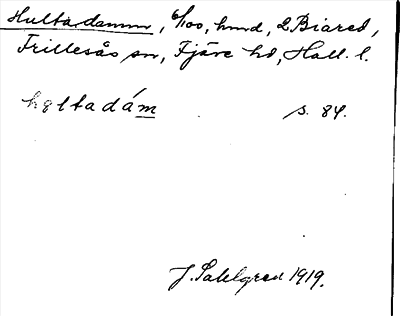 Hultadamm, 6/100, hmd, 2 Biared,
Frillesås sn, Fjäre hd, Hall. l.
hqltadám s. 84.
J. Sahlgren 1919.